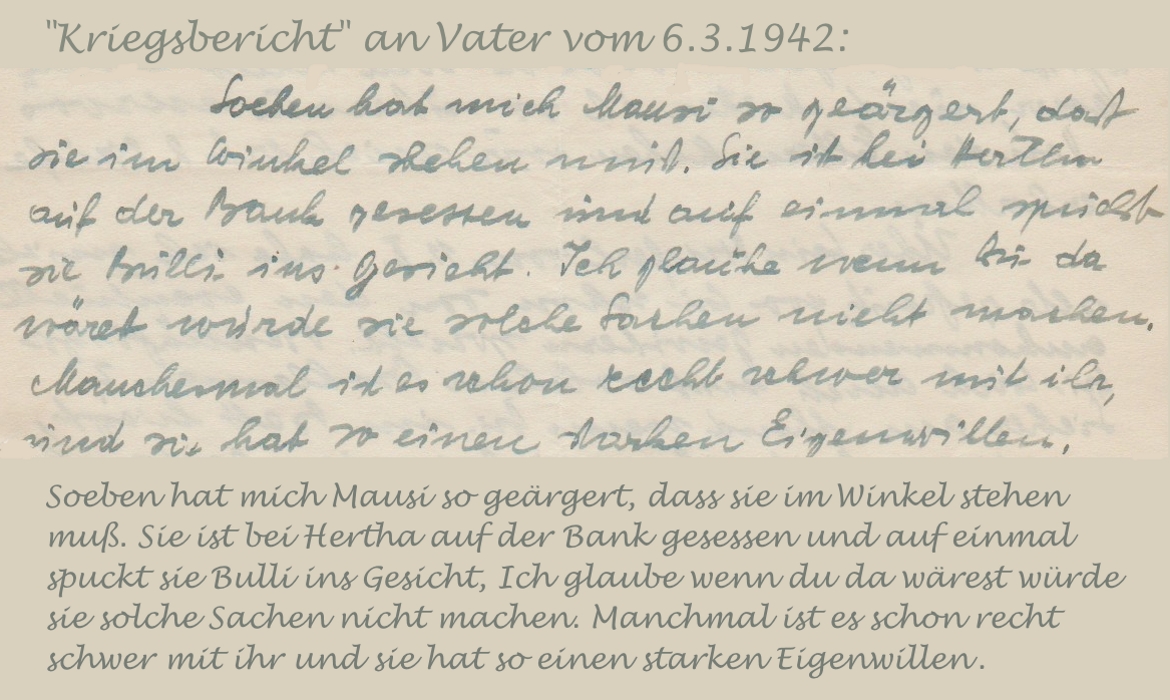 "Kriegsbericht" an Vater vom 6.3.1942:
Soeben hat mich Mausi so geärgert, daß
sie im Winkel stehen muß. Sie ist bei Hertha
auf der Bank gesessen und auf einmal spuckt
sie Bulli ins Gesicht. Ich glaube wenn Du da
wärest würde sie solche Sachen nicht machen.
Manchesmal ist es schon recht schwer mit ihr,
und sie hat so einen starken Eigenwillen.
Soeben hat mich Mausi so geärgert, dass sie im Winkel stehen
muß. Sie ist bei Hertha auf der Bank gesessen und auf einmal
spuckt sie Bulli ins Gesicht, Ich glaube wenn du da wärest würde
sie solche Sachen nicht machen. Manchmal ist es schon recht
schwer mit ihr und sie hat so einen starken Eigenwillen.